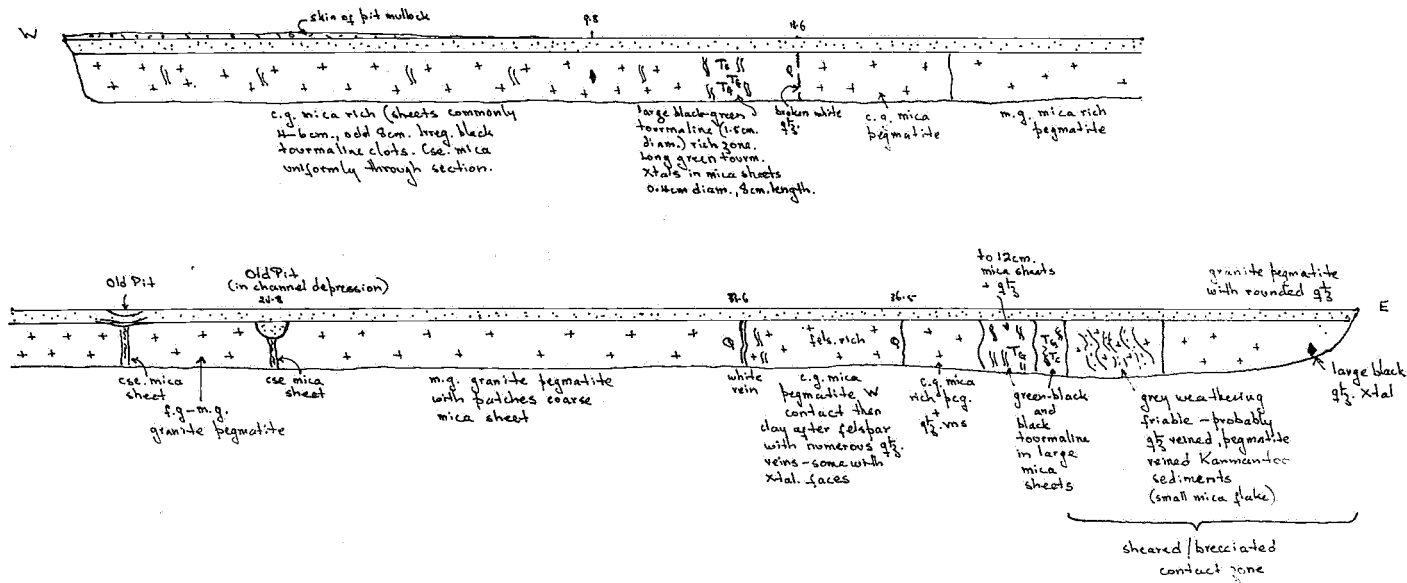 skin of pit mullock
W
9.8
14.6
TG
TG
TG
Q
c.g. mica rich (sheets commonly
4-6cm., odd 8cm. Irreg. black
tourmaline clots. Cse. mica
uniformly through section.
large black-green
tourmaline (1.5cm.
diam.) rich zone.
Long green tourm.
Xtals in mica sheets
0.4cm diam., 8cm. length.
broken white
qtz.
c.g. mica
pegmatite
m.g. mica rich
pegmatite
Old Pit
Old Pit
(in channel depression)
24.8
36.5
to 12cm.
mica sheets
+ qtz
granite pegmatite
with rounded qtz
E
Q
fels. rich
Q
TG
TG
TG
cse. mica
sheet
f.g-m.g.
granite pegmatite
cse mica
sheet
m.g. granite pegmatite
with patches coarse
mica sheet
white
vein
c.g. mica
pegmatite W
contact then
clay after felspar
with numerous qtz.
veins - some with
Xtal. faces
c.g. mica
rich peg.
+
qtz. vns
green-black
and
black
tourmaline
in large
mica
sheets
grey weathering
friable - probably
qtz veined, pegmatite
veined Kanmantoo
sediments
(small mica flake)
large black
qtz. Xtal
sheared/brecciated
contact zone